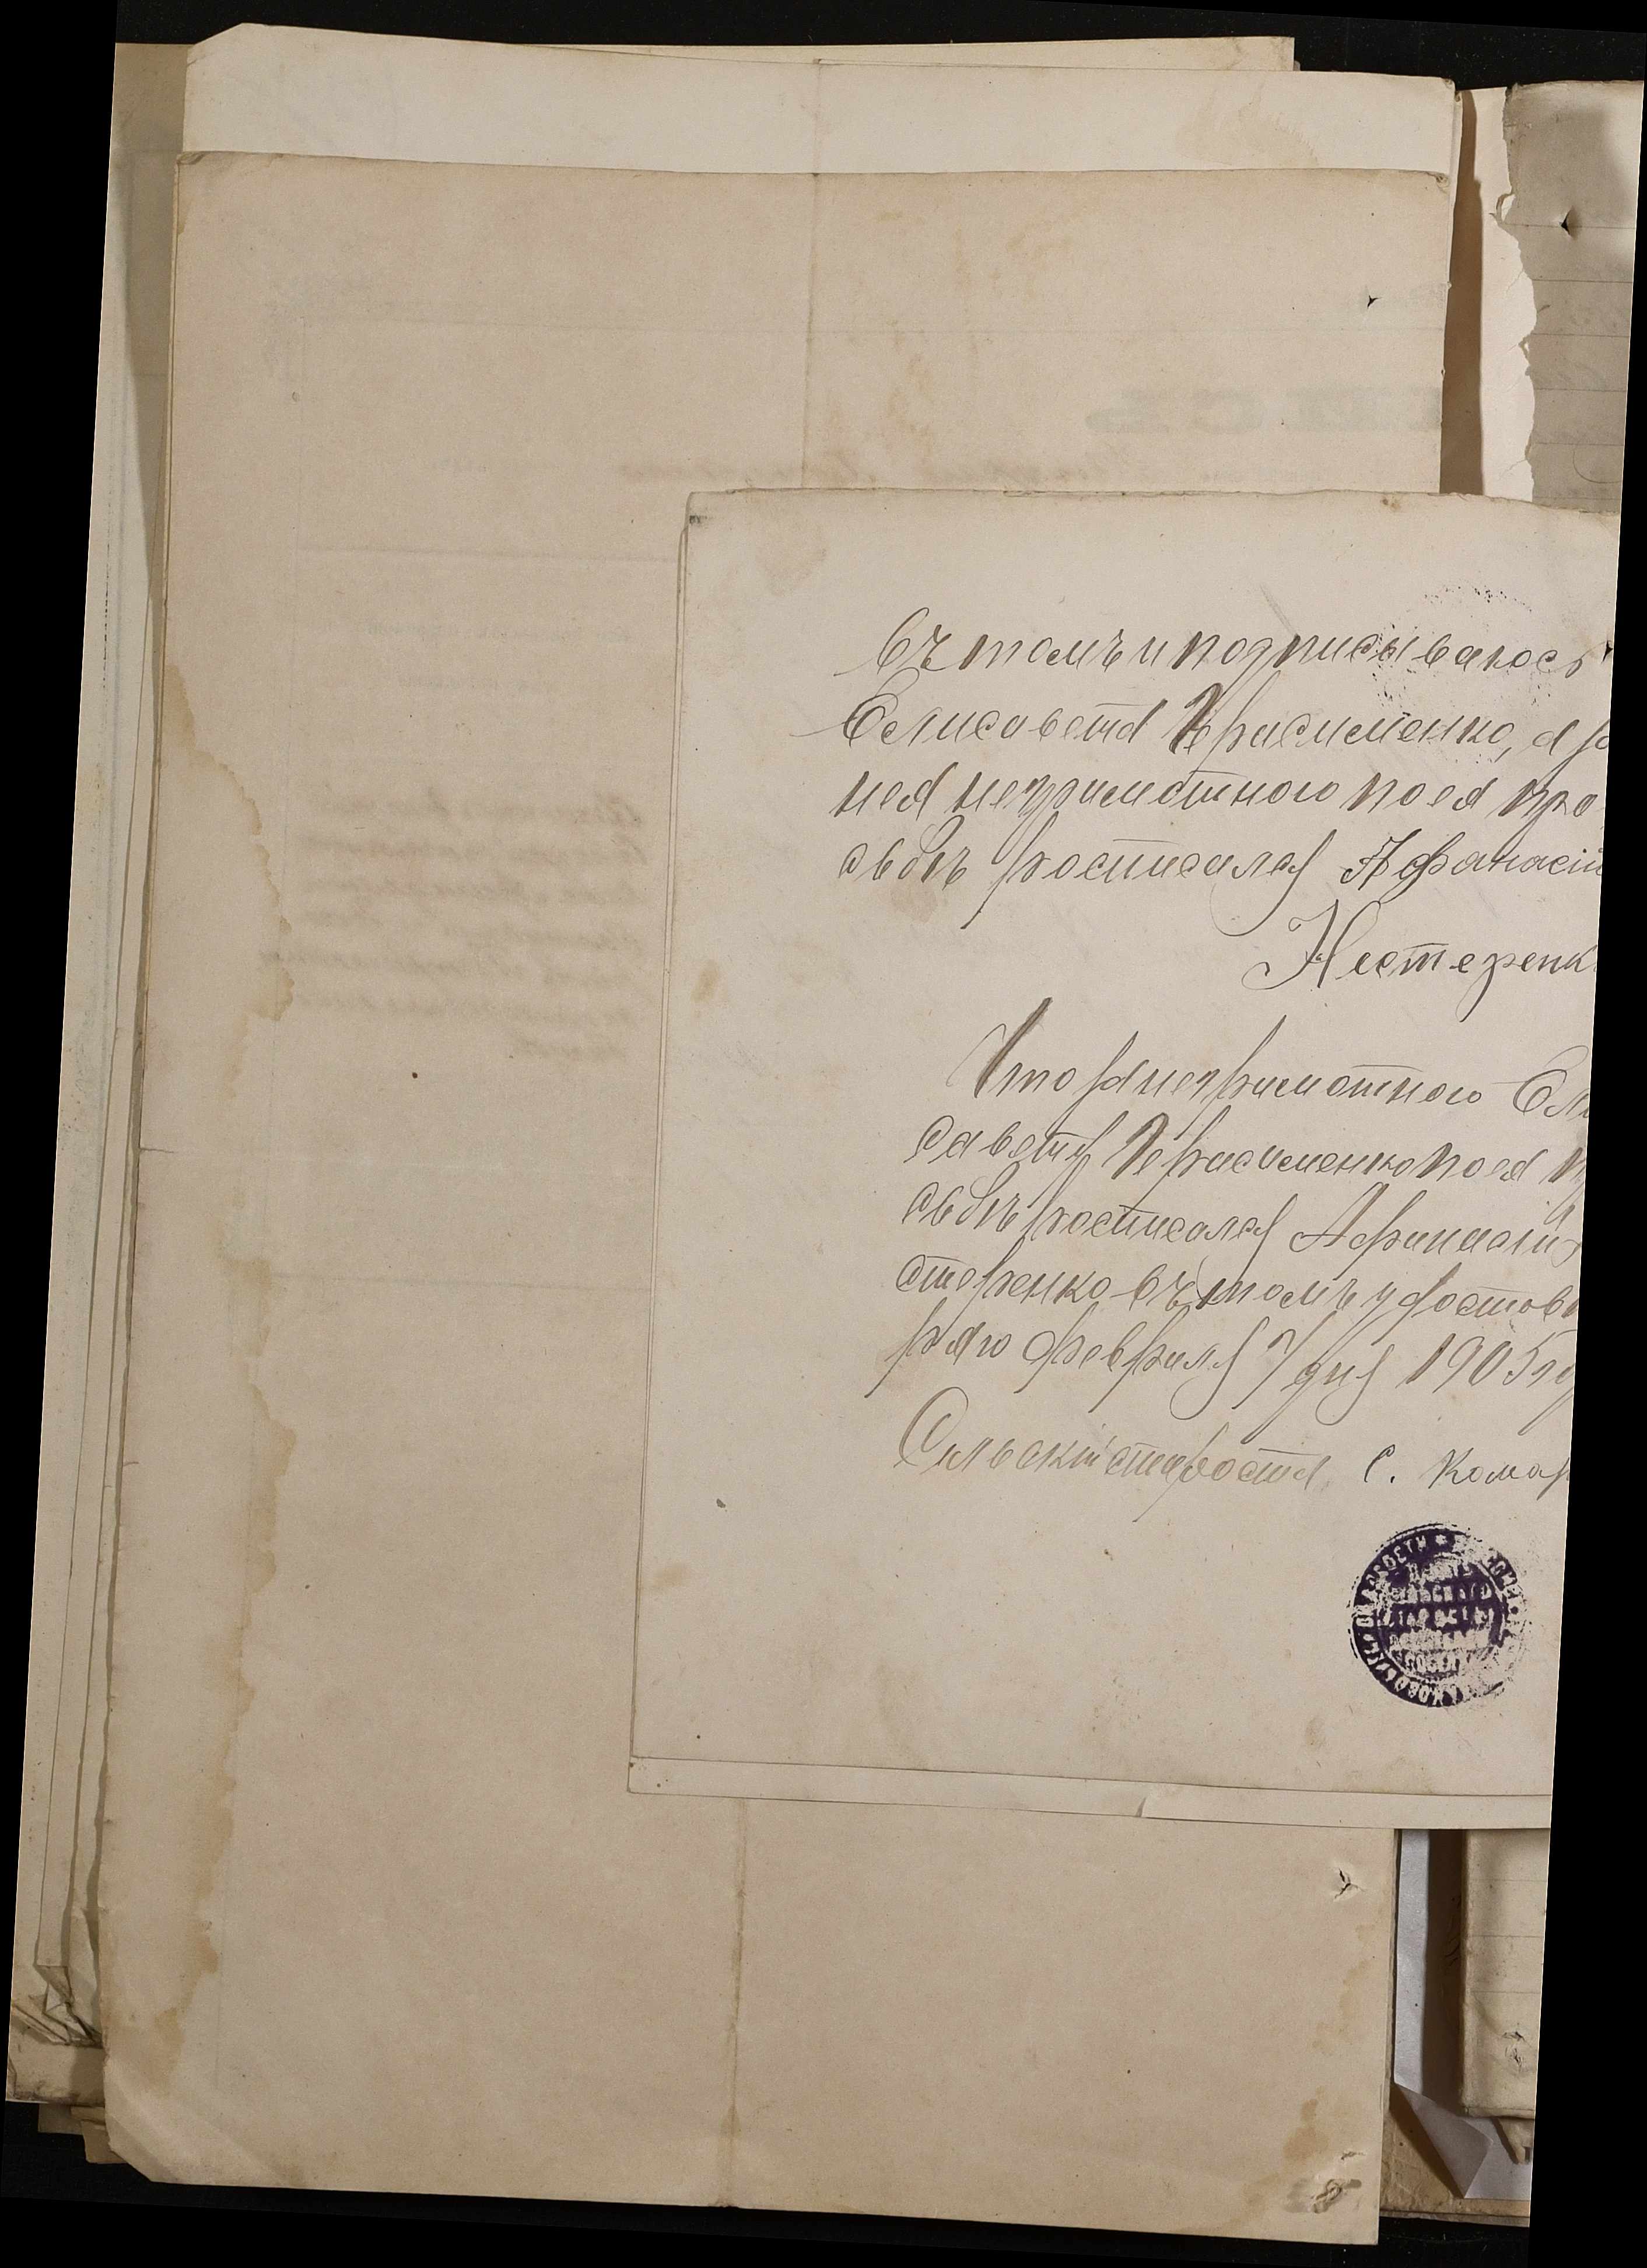 въ томъ и подписываюсь
Елисавета Герасименко, а за
нея неграмотного по ея про
сьбѣ росписался Афанасій
Нестеренк
Что за неграмотного Ели
савету Герасименко по ея п
сьбѣ росписался Афанасій
стеренко въ томъ удостовѣ
ряю февраля 7 дня 1905 го
Сельскій староста С. Комар